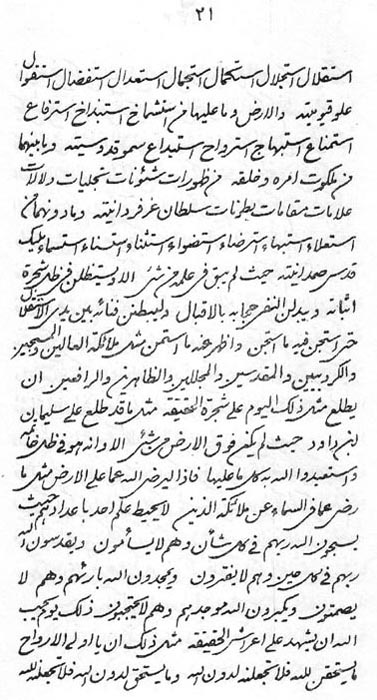 ٢١
استقلال استجلال استکمال استجمال استعدال استفضال استفوال
علو قیومیته والارض وما علیها من استشماخ استبذاخ استرفاع
استمناع استبهاج استرواح استبداع سمو قدوسیته وما بینهما
من ملکوت امره وخلقه من ظهورات شئونات تجلیات دلالات
علامات مقامات بطونات سلطان عز فردانیته وما دونهما من
استعلاء استبهاء استرضاء استضواء استثناء استسناء استسماء ملیک
قدس صمدانیته حیث لم یبق فی علمه من شئ الا ویستظلن فی ظل شجرة
اثباته ویبدلن النفی حجابه بالاقبال ولیبطنن فنائه بین یدی الاستقلال
حتی استجن فیه ما استجن واظهر عنه ما استمن مثل ملائکة العالین والمسبحین
والکروبیین والمقدسین والمجللین والظاهرین والرافعین ان
یطلع مثل ذلک الیوم علی شجرة الحقیقة مثل ما قد طلع علی سلیمان
ابن داود حیث لم یکن فوق الارض من شئ الا وانه هو فی ظل خاتمه
واستعبدوا الله به کل ما علیها فاذا لیرضی الله عما علی الارض مثل ما
رضی عما فی السماء عن ملائکة الذین لا یحیط علم احد باعدادهم حیث
یسبحون الله ربهم فی کل شأن وهم لا یسأمون ویقدسون الله
ربهم فی کل حین وهم لا یفترون ویمجدون الله بارئهم وهم لا
یصمتون ویکبرون الله موجدهم وهم لا یحتجبون ذلک یوم یحب
الله ان یشهد علی اعراش الحقیقة مثل ذلک ان یا اولی الارواح
ما یستحق لله فلا تجعلنه لدون الله وما یستحق لدون الله فلا تجعلنه لله